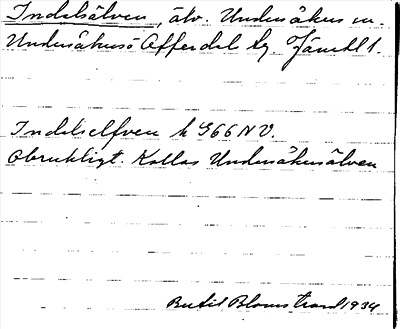 Indalsälven, älv. Undersåkers sn.
Undersåkers o Offerdal tg. Jämtl l.
Indalselfven k G66 NV.
Obrukligt. Kallas Undersåkersälven
Bertil Blomstrand 1934